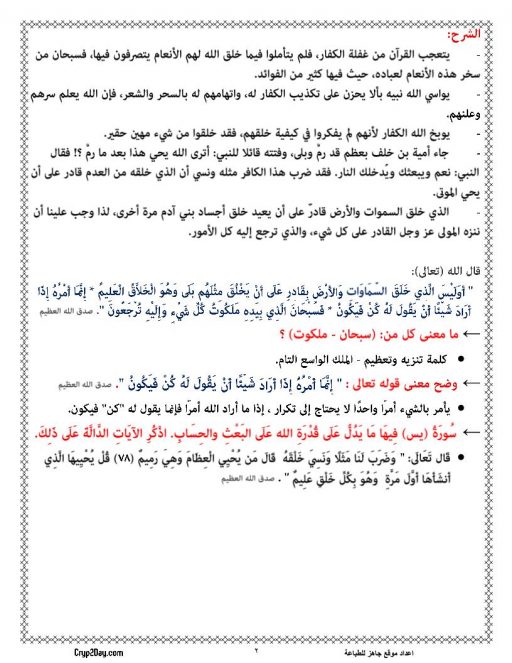 الشرح:
- يتعجب القرآن من غفلة الكفار، فلم يتأملوا فيما خلق الله لهم الأنعام يتصرفون فيها، فسبحان من
سخر هذه الأنعام لعباده، حيث فيها كثير من الفوائد.
- يواسي الله نبيه بألا يحزن على تكذيب الكفار له، واتهامهم له بالسحر والشعر، فإن الله يعلم سرهم
وعلنهم.
- يوبخ الله الكفار لأنهم لم يفكروا في كيفية خلقهم، فقد خلقوا من شيء مهين حقير.
- جاء أمية بن خلف بعظم قد رمَّ وبلى، وفتته قائلا للنبي: أترى الله يحي هذا بعد ما رمَّ ؟! فقال
النبي: نعم ويبعثك ويدخلك النار. فقد ضرب هذا الكافر مثله ونسي أن الذي خلقه من العدم قادر على أن
يحي الموتى.
- الذي خلق السموات والأرض قادرٌ على أن يعيد خلق أجساد بني آدم مرة أخرى، لذا وجب علينا أن
ننزه المولى عز وجل القادر على كل شيء، والذي ترجع إليه كل الأمور.
قال الله (تعالى):
" أَوَلَيْسَ الَّذي خَلَقَ السَّمَاوَات وَالأَرْضَ بِقَادِرٍ عَلَى أَنْ يَخْلُقَ مثْلَهُم بَلَى وَهُوَ الْخَلَّاقُ الْعَليمُ * إِنَّمَا أَمْرُهُ إذَا
أَرَادَ شَيْئًا أَنْ يَقُولَ لَهُ كُنْ فَيَكُونُ * فَسُبْحَانَ الَّذي بِيَدِه مَلَكُوتُ كُلِّ شَيْءٍ وَإلَيْهِ تُرْجَعُونَ ". صدق الله العظيم
← ما معنى كل من: (سبحان - ملكوت) ؟
• كلمة تنزيه وتعظيم - الملك الواسع التام.
← وضح معنى قوله تعالى : " إِنَّمَا أَمْرُهُ إذَا أَرَادَ شَيْئًا أَنْ يَقُولَ لَهُ كُنْ فَيَكُونُ ". صدق الله العظيم
• يأمر بالشيء أمرًا واحدًا لا يحتاج إلى تكرار ، إذا ما أراد الله أمرًا فإنما يقول له "كن" فيكون.
← سُورَةُ (يس) فِيهَا مَا يَدُلُّ عَلَى قُدْرَةِ الله عَلَى البَعْثِ والحِسَابِ. اذكُرِ الآيَاتِ الدَّالَّةَ عَلَى ذَلِكَ.
• قال تَعَالَى: " وَضَرَبَ لَنَا مَثَلًا وَنَسِيَ خَلْقَهُ قَالَ مَن يُحْيِي الْعِظَامَ وَهِيَ رَمِيمٌ (٧٨) قُلْ يُحْيِيهَا الَّذِي
أَنشَأَهَا أَوَّلَ مَرَّةٍ وَهُوَ بِكُلِّ خَلْقٍ عَلِيمٌ " . صدق الله العظيم
Cryp2Day.com
٢
اعداد موقع جاهز للطباعة